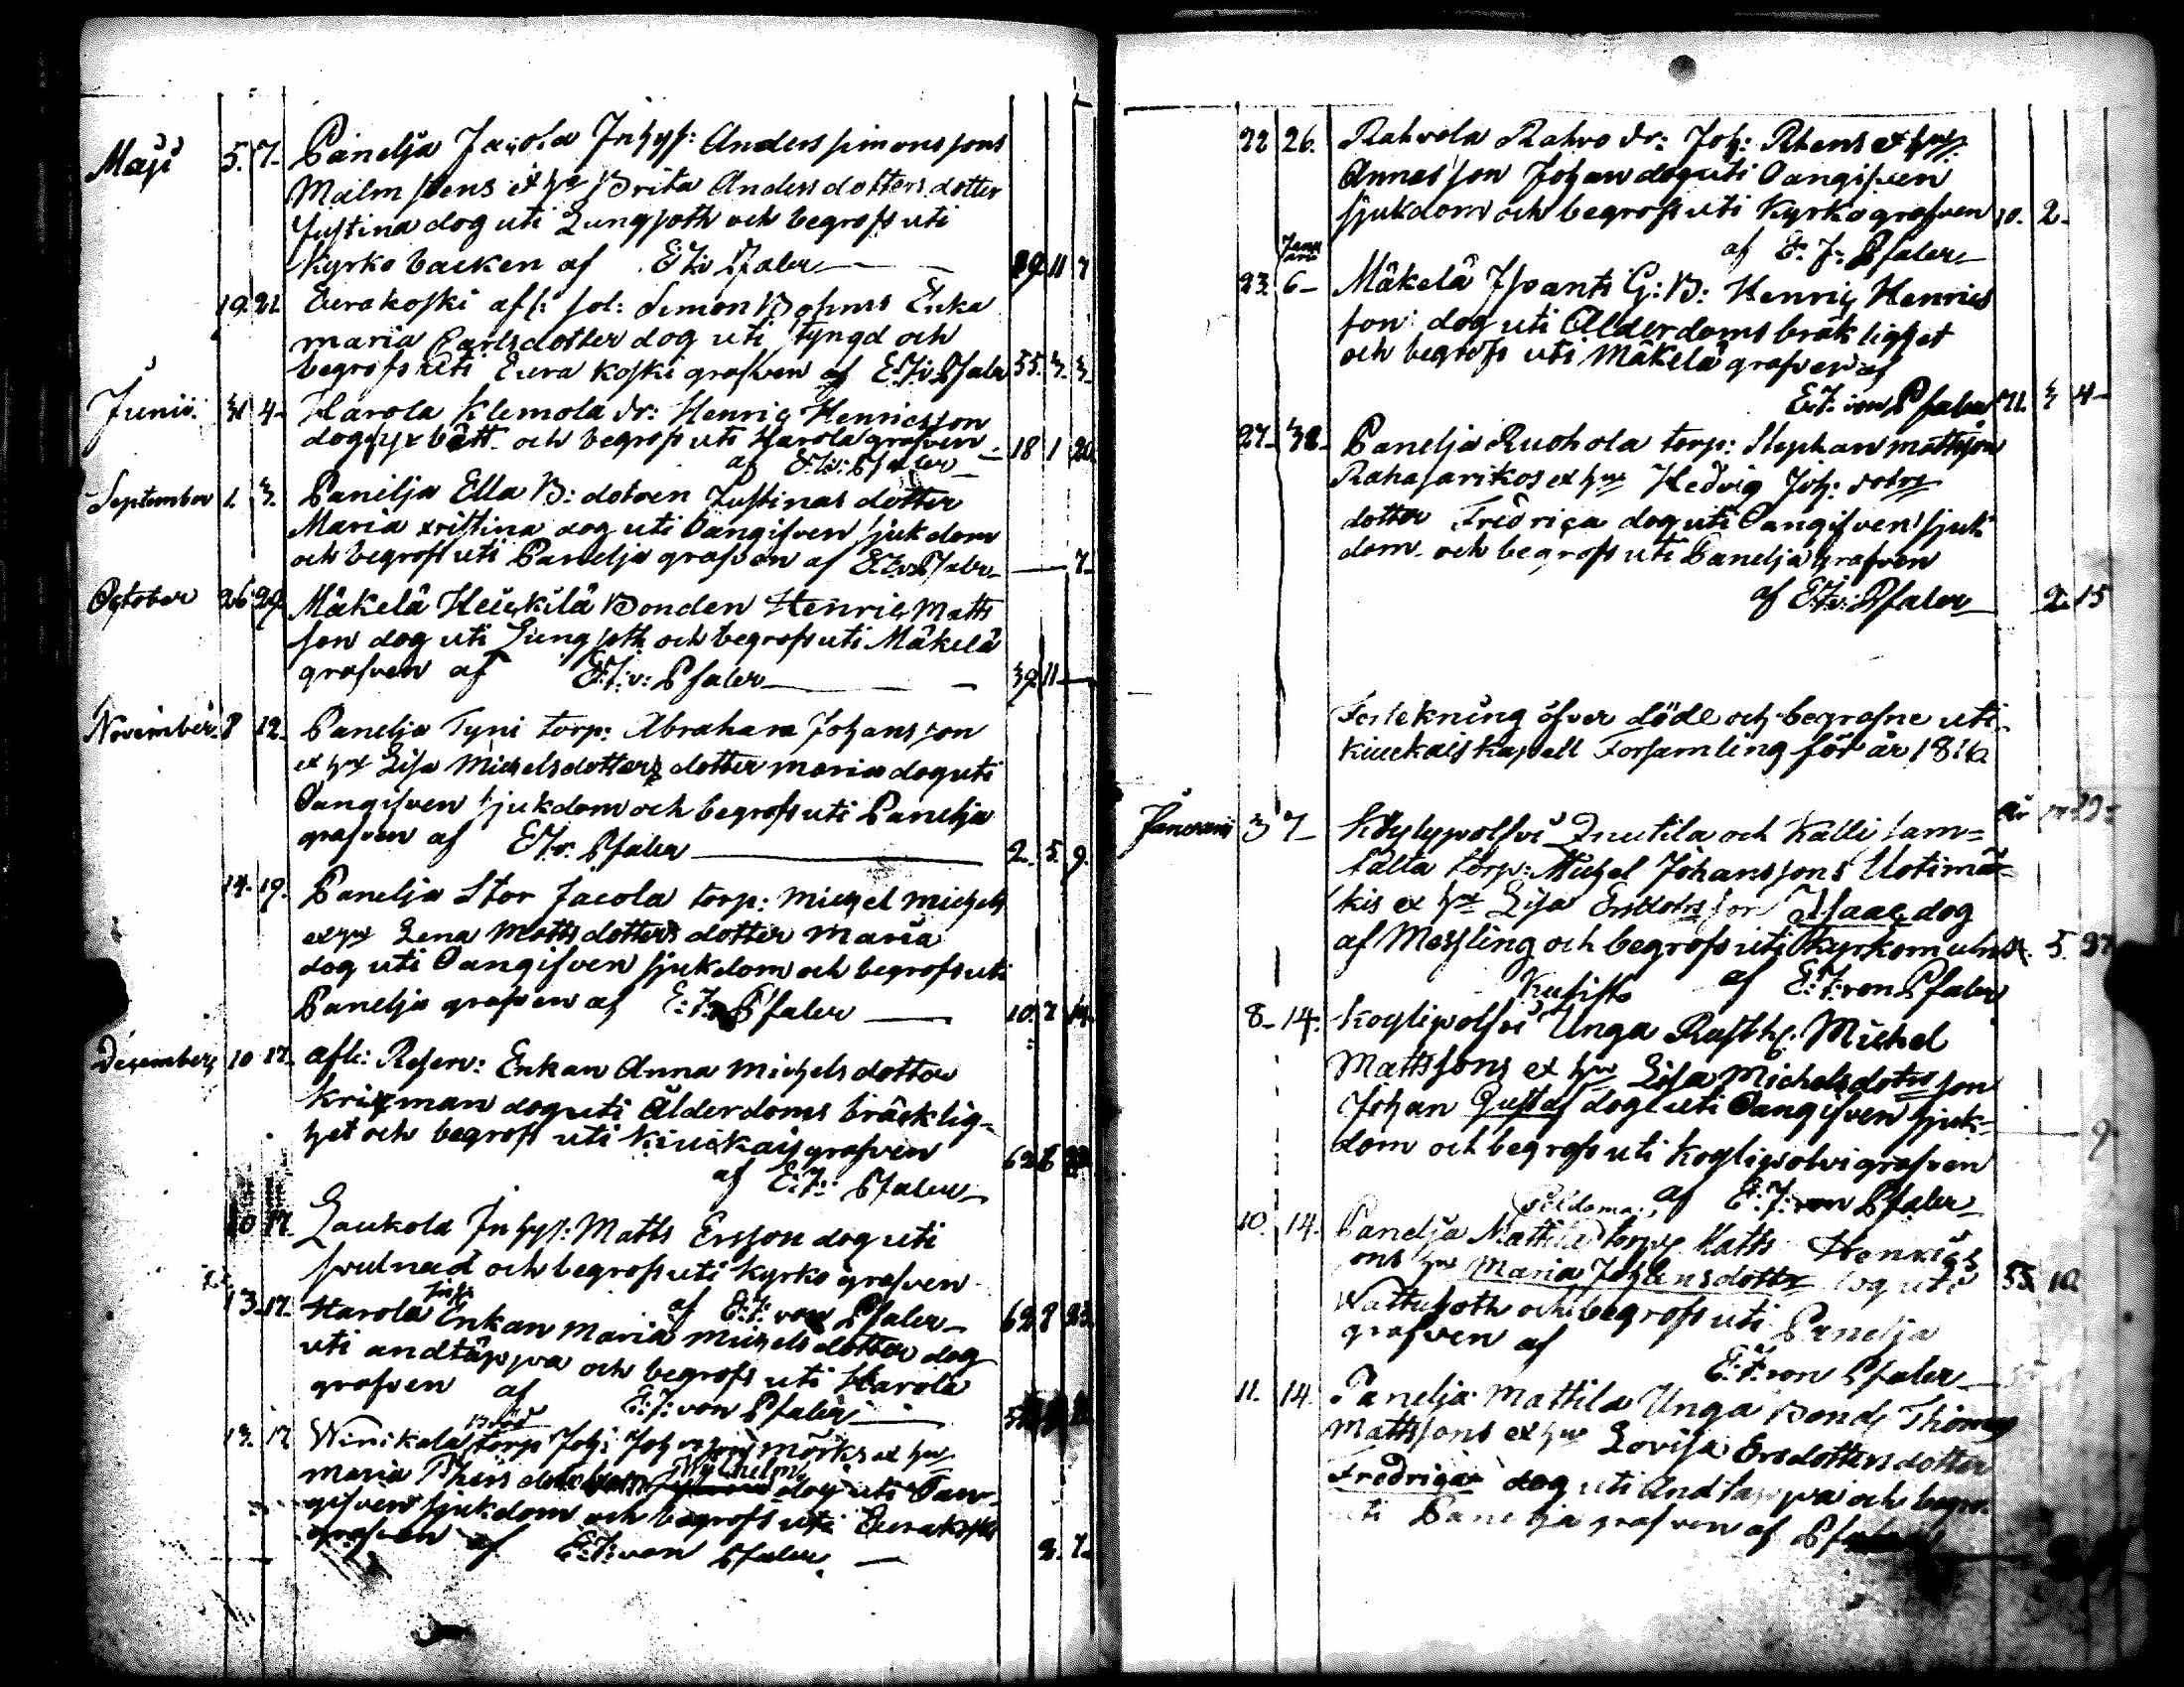 Maji 5. 7. Panelja Jacola Inhys: Anders Simonssons
Malmstens et hr Brita Andersdotters dotter
Justina dog uti Lungsoth och begrofs uti
Kyrko backen af E: J: v: Pfaler 11 7
19. 21. Eurakoski afl: sol: Simon Enka
maria Carlsdotter dog uti styngd och
begrofs uti Eura koski grafven af E: J: v: Pfaler 55. 3. 3.
Junii. 4 Harola Klemola dr: Henric Henricsson
dog och begrofs uti Harola grafven 18 1 20.
af E: J: v: Pfaler
September 1. 3. Panelja Ella B: dotren Justinas dotter
Maria Kristina dog uti Oangifven sjukdom
och begrofs uti Panelja grafven af E: J: v: Pfaler — 7
October 26 29. Mäkelä Heickilä Bonden Henric Matts
son dog uti Lungsoth och begrofs uti Mäkelä
grafven af E: J: v: Pfaler 39. 11
November. 8 12. Panelja Tyni torp: Abraham Johansson
et hr Lisa Michelsdotters dotter maria dog uti
Oangifven sjukdom och begrofs uti Panelja
grafven af E: J: v: Pfaler 2. 5. 9.
14. 19. Panelja Stor Jacola torp: michel michels
et hr Lena Mattsdotters dotter Maria
dog uti Oangifven sjukdom och begrofs uti
Panelja grafven af E: J: v: Pfaler 10. 7 14.
December 10 17. afl: Reserv: Enkan Anna michelsdotter
Krixman dog uti Ålderdoms bräcklig-
het och begrofs uti Kiuckais grafven
af E: J: v: Pfaler
10 17. Laukola Inhys: Matts Ersson dog uti
svulnad och begrofs uti Kyrko grafven
af E: J: von Pfaler 62 8 23.
13. 17. Harola Enkan maria michelsdotter dog
uti andtäppa och begrofs uti Harola
grafven af E: J: von Pfaler
13. 17 Winikala torp Joh: Johanssons mörks et hr
maria Thersdotters Wilhelm dog uti Oan-
gifven sjukdom och begrofs uti Eurakoski
grafven af E: J: von Pfaler 3. 7.
22 26. Rahvola Rahvo dr: Joh: Rhens et hr
Annas son Johan dog uti Oangifven
sjukdom och begrofs uti Kyrko grafven 10. 2
af E: J: Pfaler
23. Januarii 6 Mäkelä Isoants G: B: Henric Henrics
son dog uti Ålderdoms bräklighet
och begrofs uti Mäkelä grafven af
E: J: von Pfaler 71. 3 4
27. Panelja Ruohola torp: Stephan mattsson
Rahajarikos et hr Hedvig Joh: dotrs
dotter Fredrica dog uti Oangifven sjuk
dom och begrofs uti Panelja grafven
af E: J: v: Pfaler 2. 15
Fortekning öfver döde och begrafne uti
Kiuckais Kapell Forsamling för år 1816
år
Januarii 3 7 Köylypolfvi Juutila och Kalli sam-
fälta torp: Michel Johanssons Uotimä-
kis et hr Lisa Ersdotrs son Isaac dog
af Messling och begrofs uti Kyrkomuln 5.
af E: J: von Pfaler
Kusisto
8 14. Koylipolfvi Unga Rusth: Michel
Mattssons et hr Lisa Michelsdotrs son
Johan Gustaf dog uti Oangifven sjuk-
dom och begrofs uti Koylipolvi grafven 9
af E: J: von Pfaler
Peldoma
10. 14. Panelja Mattila torp: Matts Henrics
sons hr Maria Johansdotter dog uti 55. 10.
Wattusoth och begrofs uti Panelja
grafven af
E: J: von Pfaler
11. 14. Panelja Mattila Unga Bond: Thomas
Mattssons et hr Lovisa Ersdotters dotter
Fredrica dog uti Andtäppa och begro.
uti Panelja grafven af Pfaler